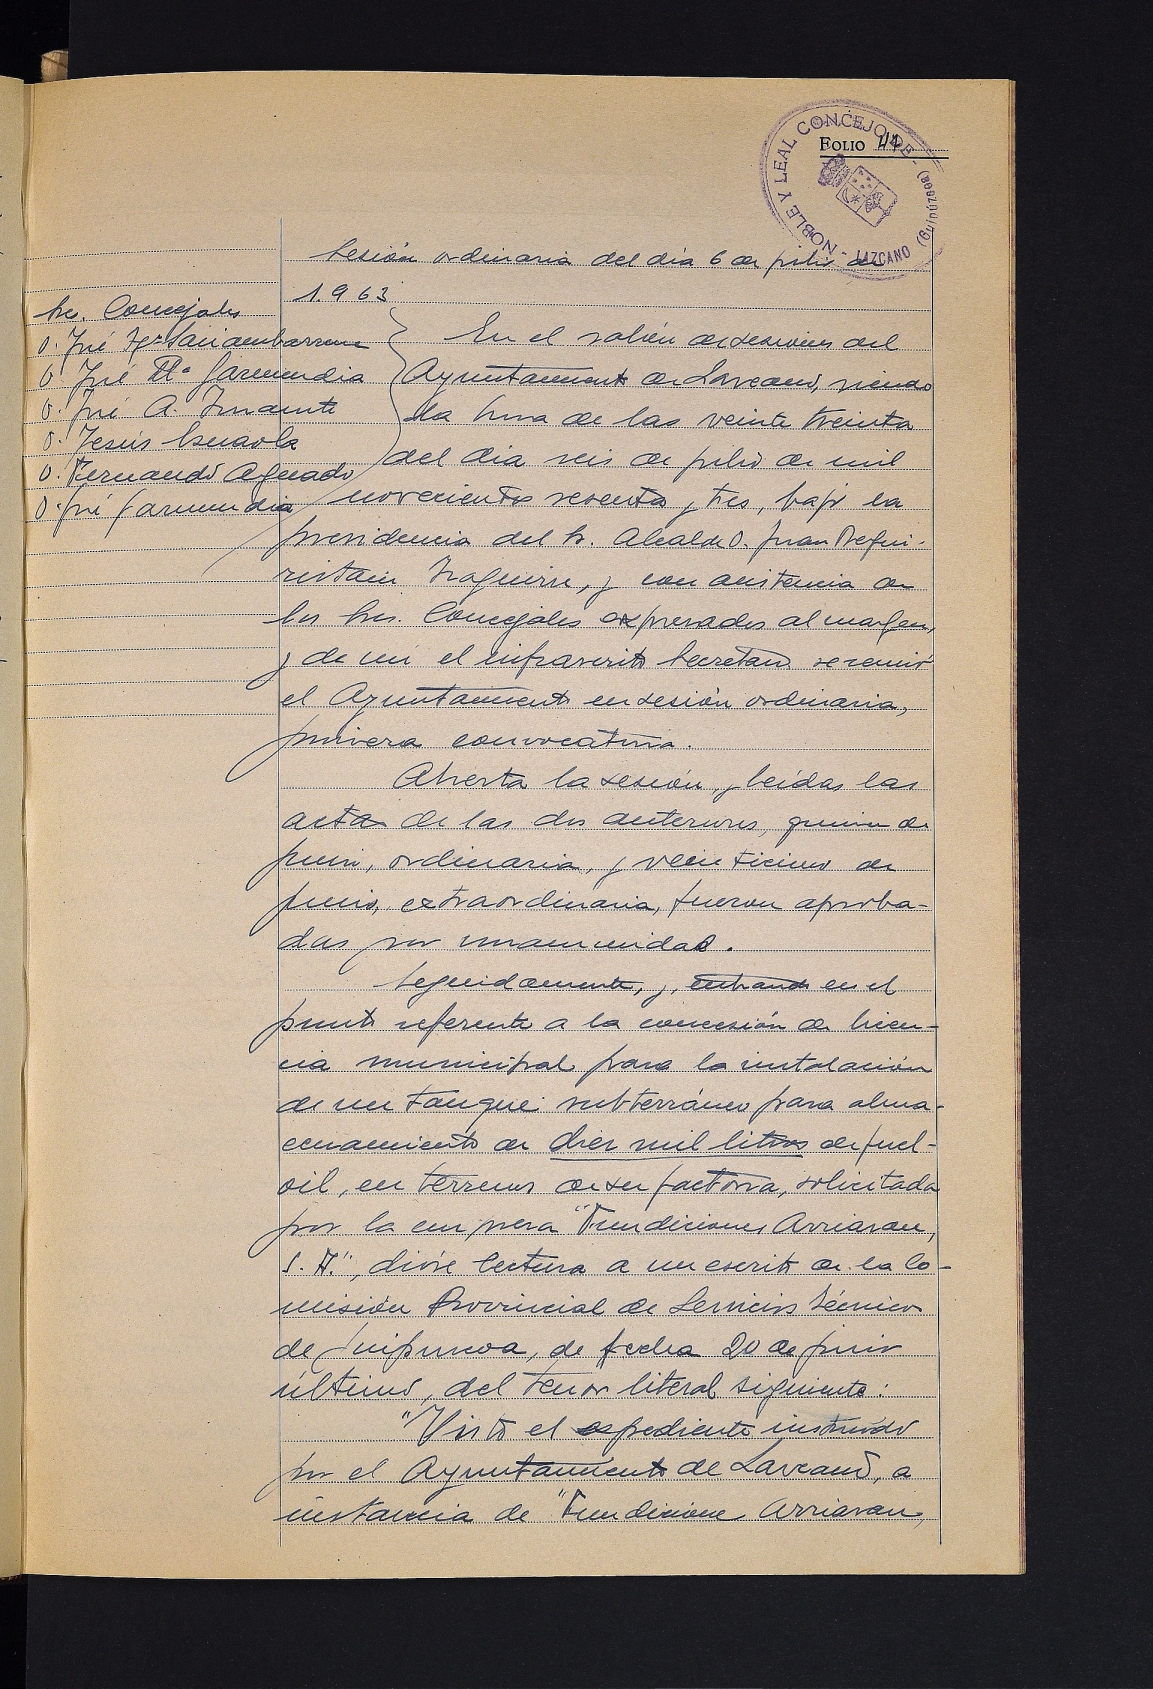 NOBLE Y LEAL CONCEJO DE - LAZCANO (Guipúzcoa)
FOLIO 41
Sesión ordinaria del dia 6 de julio de
1.963
Sres. Concejales
D. José
D. José Mª Garmendia
D. José A.
D. Jesus
D. Fernando Aguado
D. José Garmendia
En el salón de sesiones del
Ayuntamiento de Lazcano, siendo
la hora de las veinte treinta
del dia seis de julio de mil
novecientos sesenta y tres, bajo la
presidencia del Sr. Alcalde D. Juan Regui-
ristain Iraguirre, y con asistencia de
los Sres. Concejales expresados al margen,
y de mi el infrascrito Secretario se reunió
el Ayuntamiento en sesión ordinaria,
primera convocatoria.
Abierta la sesión, y leidas las
actas de las dos anteriores, quince de
junio, ordinaria, y veinticinco de
junio, extraordinaria, fueron aproba-
das por unanimidad.
Seguidamente, y, entrando en el
punto referente a la concesión de licen-
cia municipal para la instalación
de un tanque subterráneo para alma-
cenamiento de diez mil litros de fuel-
oil, en terrenos de su factoria, solicitada
por la empresa "Fundiciones Arriaran,
S. A.", dióse lectura a un escrito de la Co-
misión Provincial de Servicios Técnicos
de Guipuzcoa, de fecha 20 de junio
último, del tenor literal siguiente:
"Visto el expediente instruido
por el Ayuntamiento de Lazcano, a
instancia de "Fundiciones Arriaran,